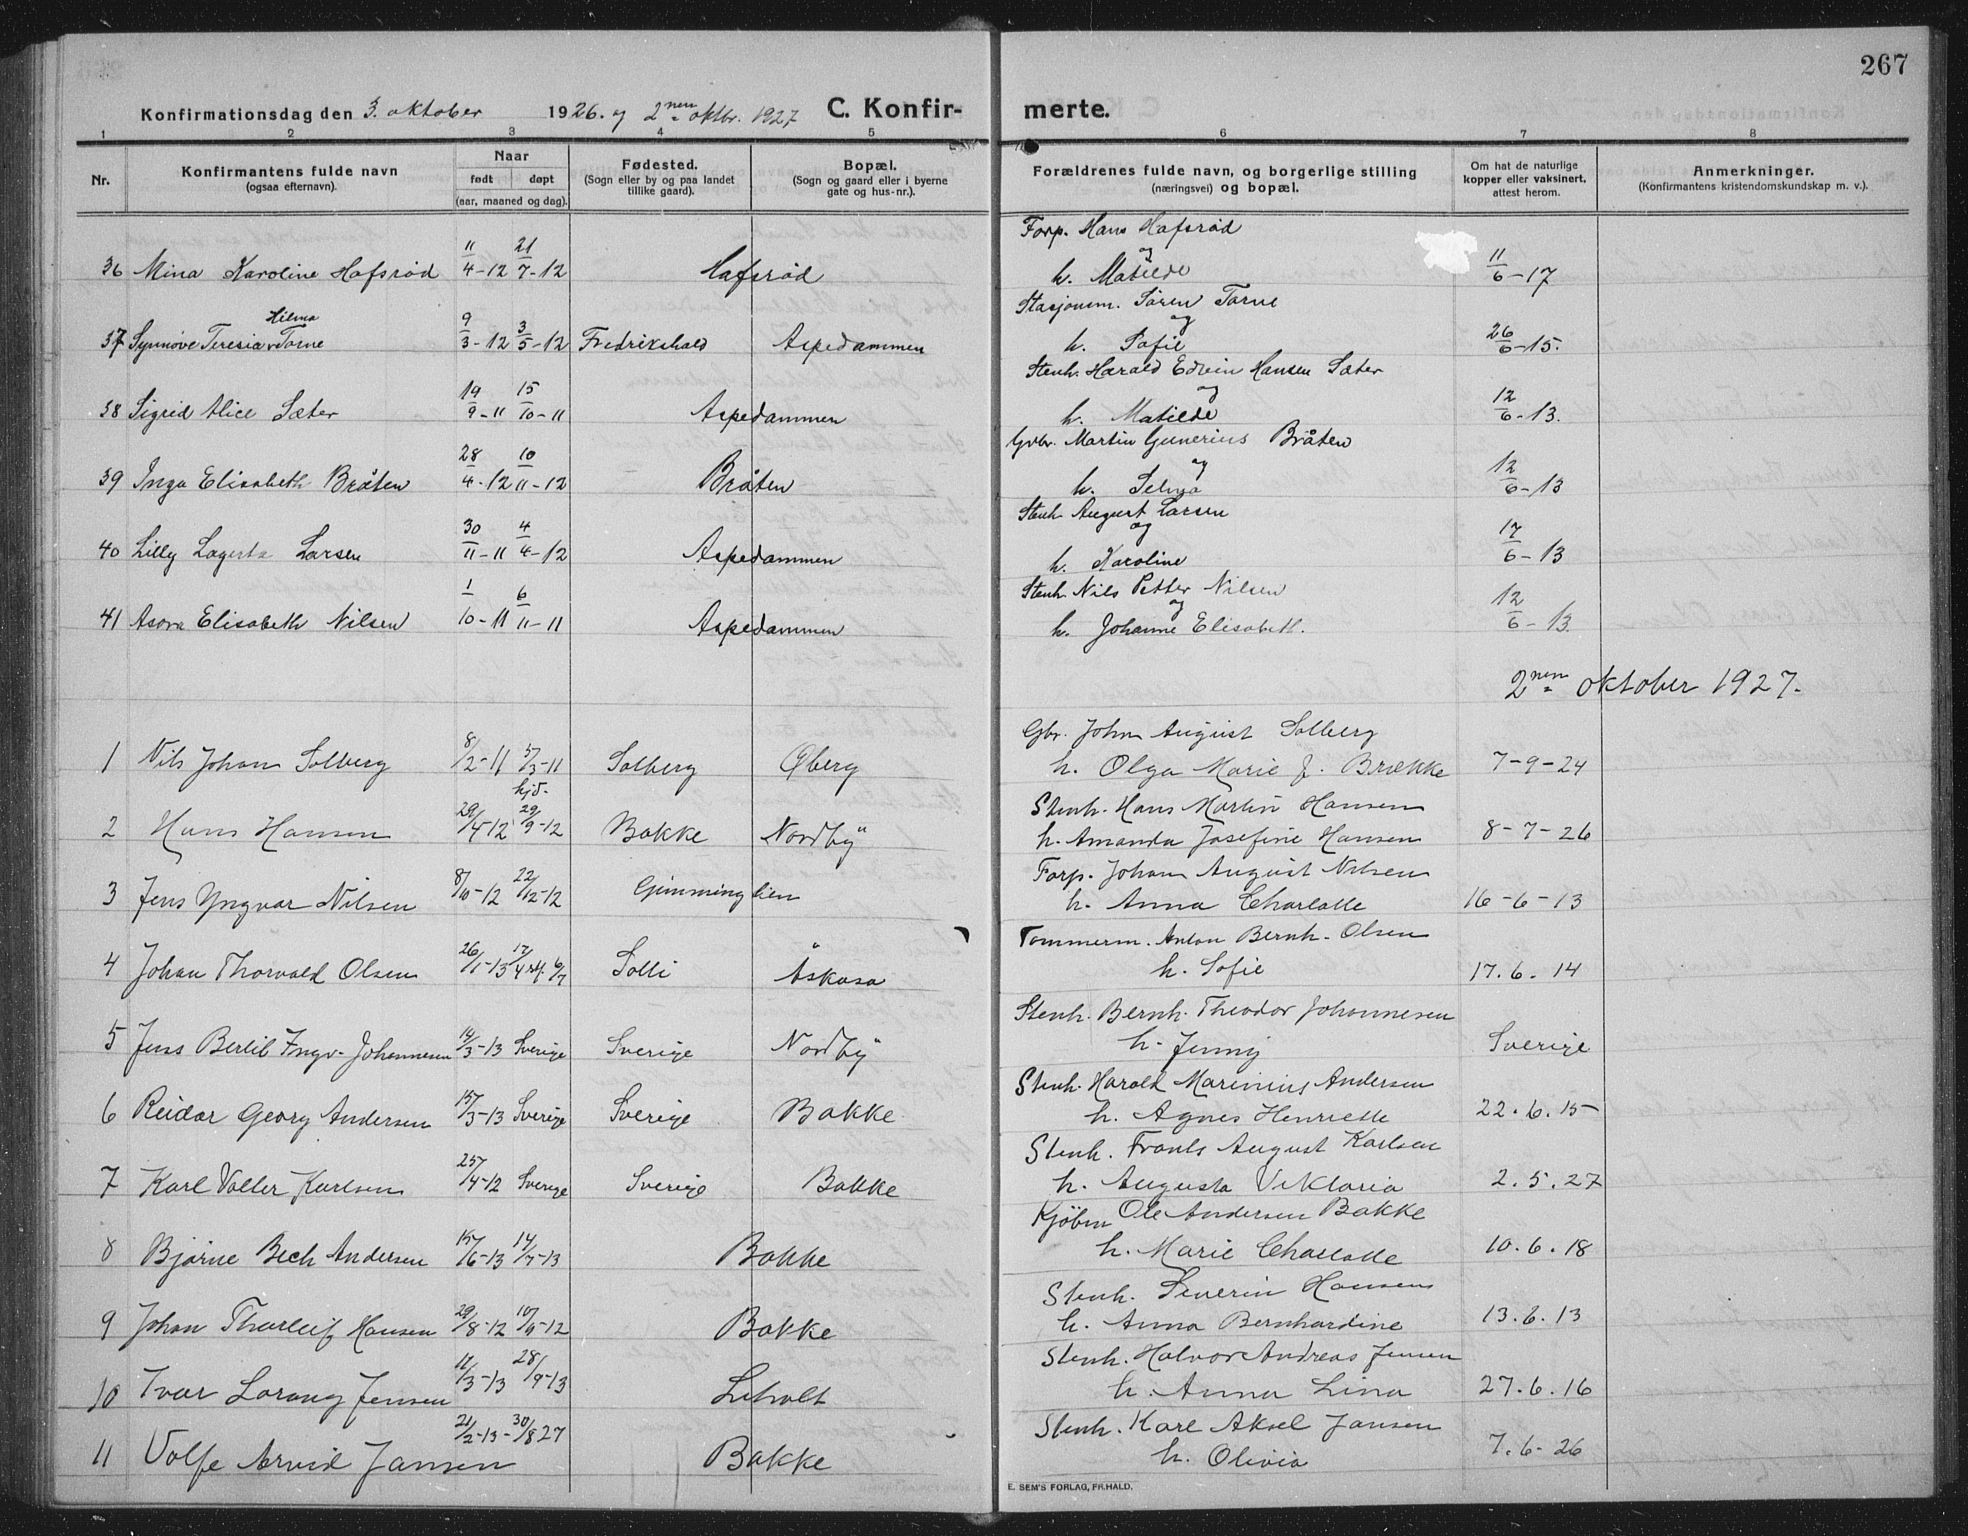 267
Konfirmationsdag den 3. oktober 1926. og 2nen oktbr. 1927 C. Konfirmerte.
1 2 3 4 5 6 7 8
Nr.
Konfirmantens fulde navn
(ogsaa efternavn).
Naar
født døpt
(aar, maaned og dag).
Fødested.
(Sogn eller by og paa landet
tillike gaard).
Bopæl.
(Sogn og gaard eller i byerne
gate og hus-nr.).
Forældrenes fulde navn, og borgerlige stilling
(næringsvei) og bopæl.
Om hat de naturlige
kopper eller vaksinert,
attest herom.
Anmerkninger.
(Konfirmantens kristendomskundskap m. v.).
Forp. Hans Hafsrød
og
36 Mina Karoline Hafsrød 11/4-12 21/7-12 Hafsrød h. Matilde 11/6-17
Stasjonsm. Søren Torne
Hilma og
37 Synnøve Teresia v Torne 9/3-12 3/5-12 Fredrikshald Aspedammen h. Sofie 26/6-15.
Stenh. Harald Edvin Hansen Sæter
og
38 Sigrid Alice Sæter 19/9-11 15/10-11 Aspedammen h. Matilde 12/6-13.
Gvbr. Martin Gunerius Bråten
og
39 Inga Elisabeth Bråten 28/4-12 10/11-12 Bråten h. Selma 12/6-13
Stenh August Larsen
og
40 Lilly Lagerta Larsen 30/11-11 4/4-12 Aspedammen h. Karoline 17/6-13
Stenh Nils Petter Nilsen
og
41 Asora Elisabeth Nilsen 1/10-11 6/11-11 Aspedammen h. Johanne Elisabeth. 12/6-13.
2nen oktober 1927.
Gbr. John August Solberg
1 Nils Johan Solberg 8/2-11 5/3-11 Solberg Øberg h. Olga Marie f. Brække 7-9-24
hjd.
Stenh. Hans Martin Hansen
2 Hans Hansen 29/4-12 29/9-12 Bakke Nordby h. Amanda Josefine Hansen 8-7-26
Forp. Johan August Nilsen
3 Jens Yngvar Nilsen 8/10-12 22/12-12 Gimminglien h. Anna Charlotte 16-6-13
Tommerm. Anton Bernh. Olsen
4 Johan Thorvald Olsen 26/1-13 17/4 st. 6/7 Solli Åskasa h. Sofie 17.6.14
Stenh. Bernh. Theodor Johannesen
5 Jens Bertil Ingv. Johannesen 14/3-13 Sverige Sverige Nordby h. Jenny Sverige
Stenh. Harald Marinius Andersen
6 Reidar Georg Andersen 15/3-13 Sverige Sverige Bakke h. Agnes Henriette 22.6.15
Stenh. Frants August Karlsen
7 Karl Valter Karlsen 25/4-12 Sverige Sverige Bakke h. Augusta Viktoria 2.5.27
Kjøbm Ole Andersen Bakke
8 Bjarne Bech Andersen 15/6-13 14/7-13 Bakke h. Marie Charlotte 10.6.18
Stenh. Severin Hansen
9 Johan Thorleif Hansen 29/8-12 10/9-12 Bakke h. Anna Bernhardine 13.6.13
Stenh. Halvor Andreas Jensen
10 Ivar Lorang Jensen 11/3-13 28/9-13 Liholt h. Anna Lina 27.6.16
Stenh. Karl Aksel Jansen
11 Volfe Arvid Jansen 21/2-13 - 30/8 27 Bakke h. Olivia 7.6-26
E. SEM'S FORLAG, FR.HALD.